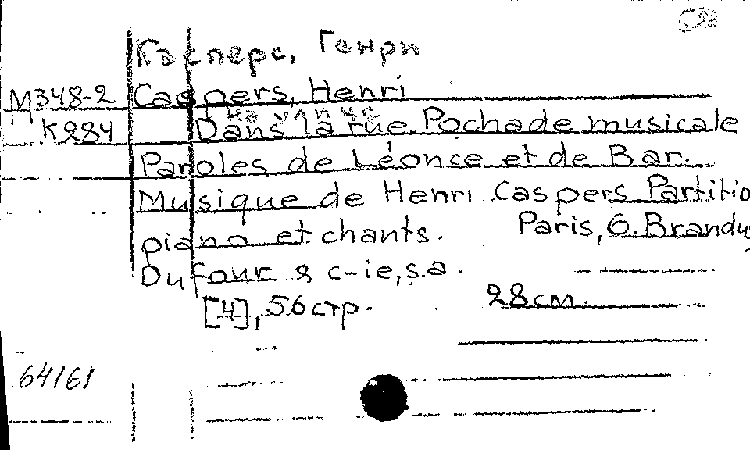 Касперс, Генри
М348-2 Caspers, Henri
К284 Dans la rue. Pochade musicale
Paroles de Léonce et de Bar.
Musique de Henri Caspers Partitio
piano et chants. Paris, G. Brandu
Dufour & c-ie, s.a.
[4], 56 стр. 28 см.
64161